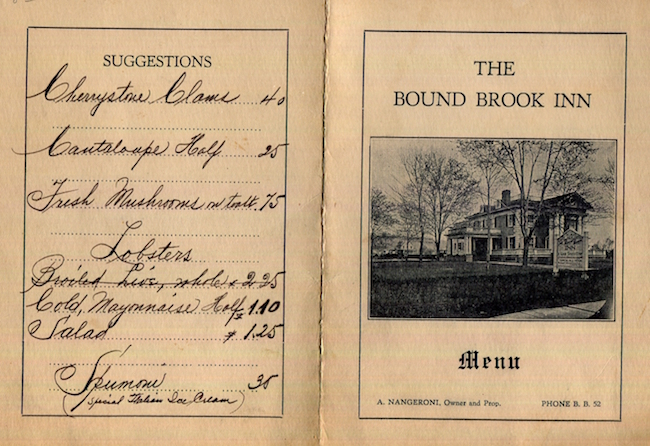 SUGGESTIONS
Cherrystone Clams 40
Cantaloupe Half 25
Fresh Mushrooms on toast .75
Lobsters
Broiled Live, whole 2.25
Cold, Mayonnaise Half 1.10
Salad 1.25
Spumoni 30
(Special Italian Ice Cream)
THE
BOUND BROOK INN
Menu
A. NANGERONI, Owner and Prop. PHONE B. B. 52